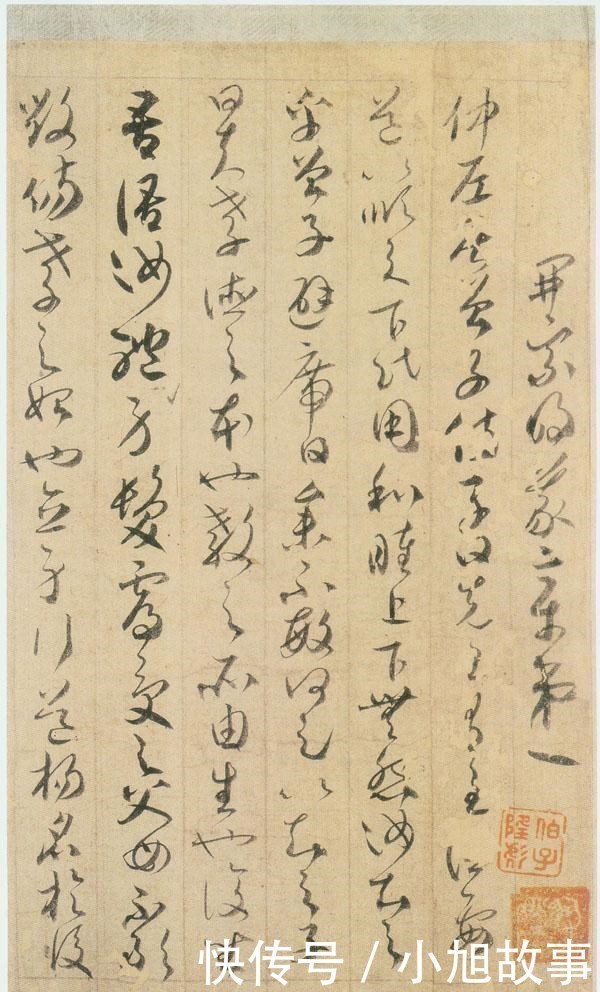 開宗明義章第一
仲尼居曾子侍子曰先王有至德要
道以順天下民用和睦上下無怨汝知之
乎曾子避席曰參不敏何足以知之子
曰夫孝德之本也教之所由生也復坐
吾語汝身體髮膚受之父母不敢
毀傷孝之始也立身行道揚名於後
快传号 / 小旭故事